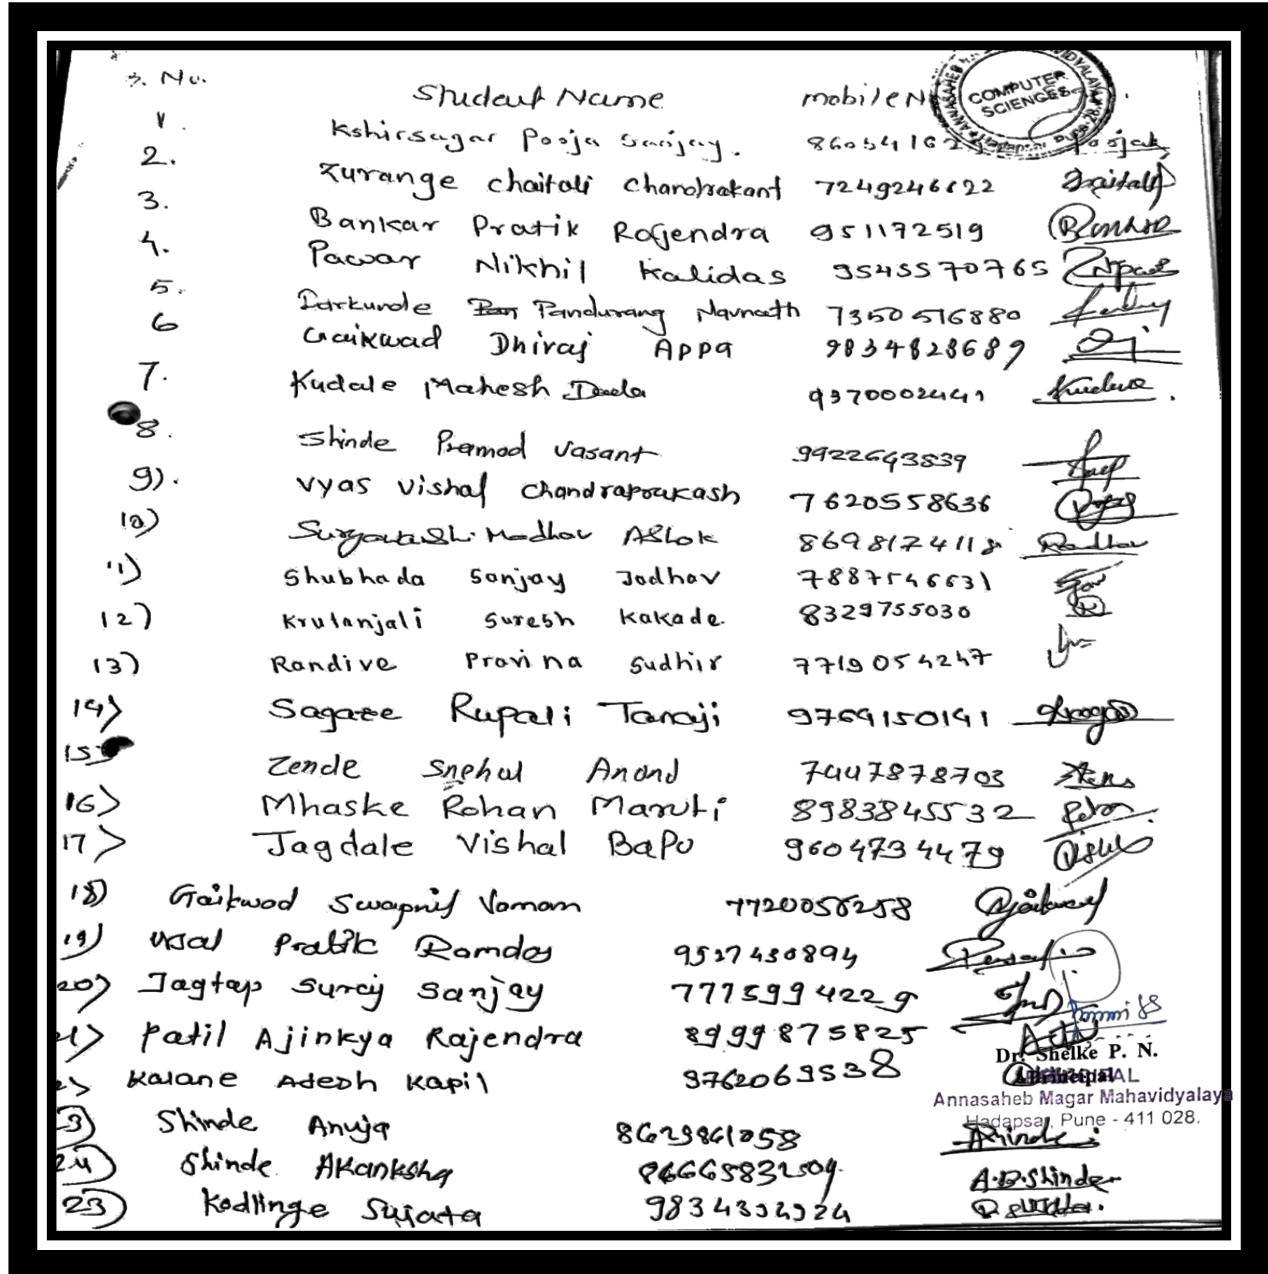 No. Student Name mobile N
1. Kshirsagar Pooja Sanjay. Poojak
2. Zurange Chaitali Chandrakant 7249246622
3. Bankar Pratik Rajendra 951172519
4. Pawar Nikhil Kalidas 9545570765
5. Darkunde Pandurang Navnath 7350516880
6 Gaikwad Dhiraj Appa 9834828689
7. Kudale Mahesh Dada 9370002441
8. Shinde Pramod Vasant 9922643839
9). Vyas Vishal Chandraprakash 7620558636
10) Suryavanshi Madhav Ashok 8698174118
11) Shubhada Sanjay Jadhav 7887546631
12) Krutanjali Suresh Kakade. 8329755030
13) Randive Pravina Sudhir 7719054247
14) Sagare Rupali Tanaji 9769150191
15) Zende Snehal Anand 7447878703
16) Mhaske Rohan Maruti 8983845532
17) Jagdale Vishal Bapu 9604734479
18) Gaikwad Swapnil Vaman 7720056258
19) Pratik Ramdas 9527430894
20) Jagtap Suraj Sanjay 7775994229
21) Patil Ajinkya Rajendra 8999875825
Kalane Adesh Kapil 9762069538
3) Shinde Anuja 8629861058
24) Shinde Akanksha A.D.Shinde
23) Kodlinge Sujata
COMPUTER
SCIENCES
Dr. Shelke P. N.
Principal
Annasaheb Magar Mahavidyalaya
Hadapsar, Pune - 411 028.